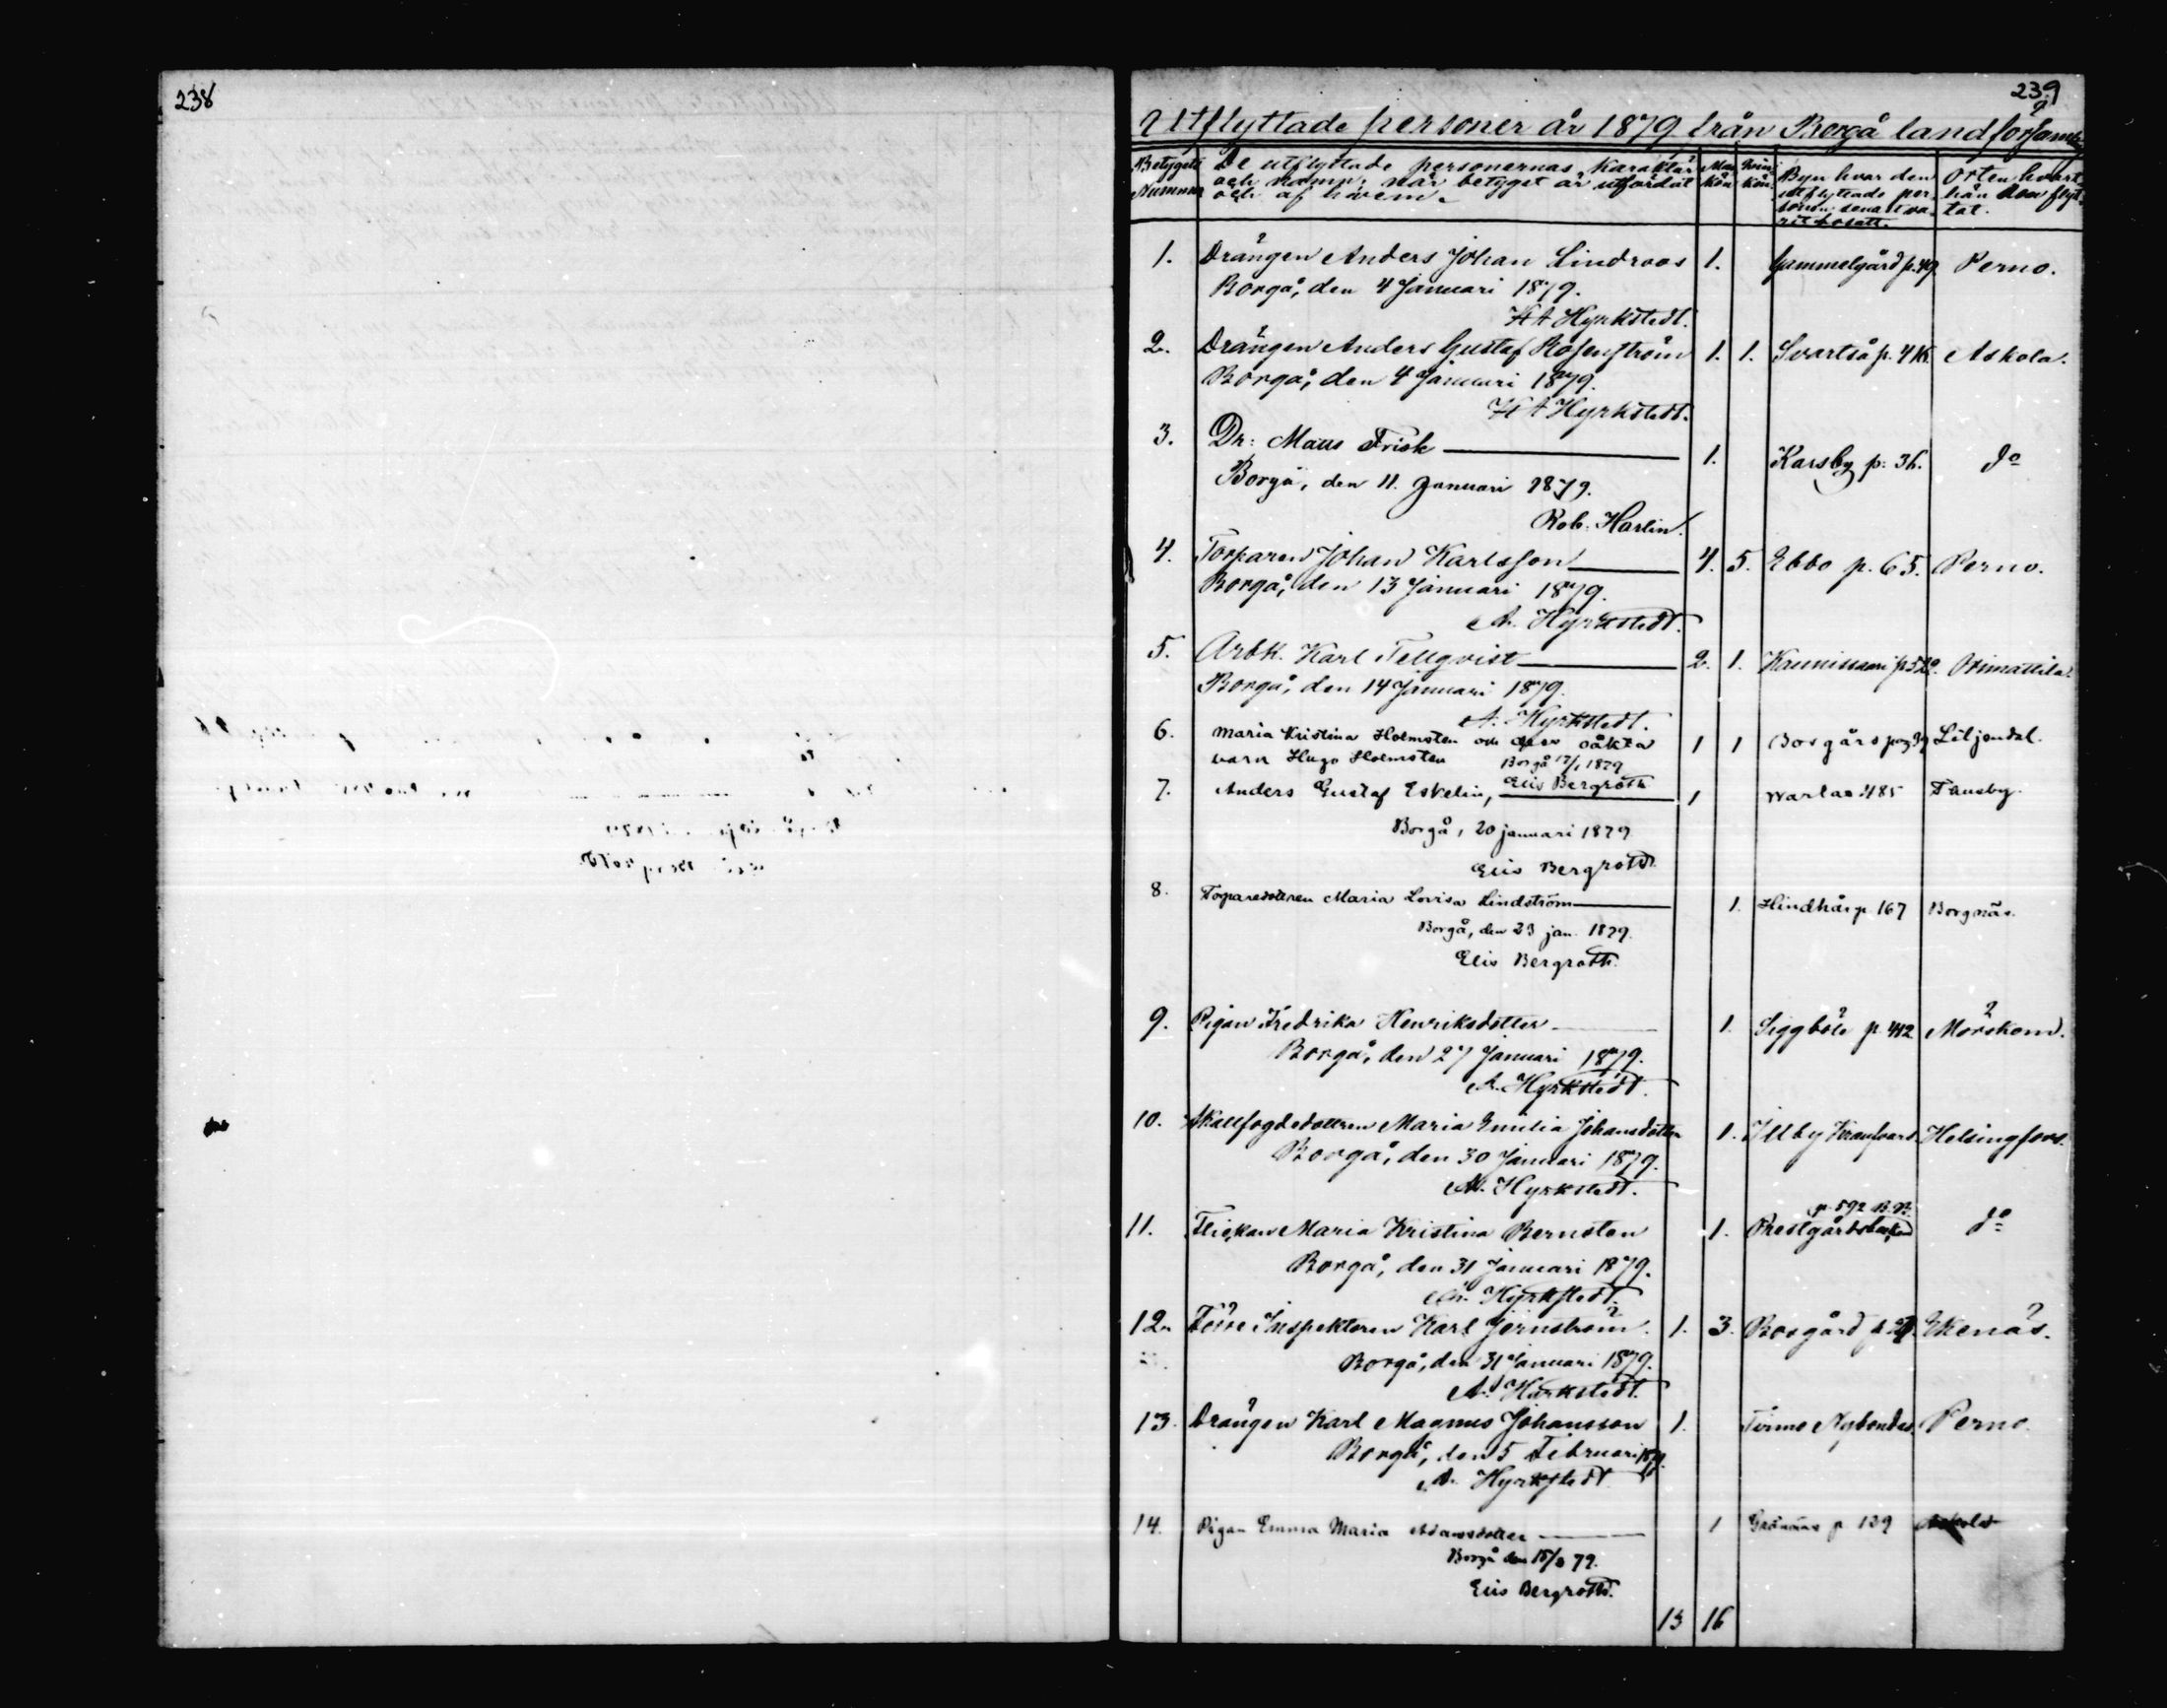 238
239
Utflyttade personer år 1879 från Borgå landsförsaml
Betygets Nummer
De utflyttade personernas karaktär och namn, när betyget är utfärdat och af hvem.
Man kön
Kvin kön
Byn hvar den utflyttade per sonen senast va rit bosatt.
Orten hvart hän den flyt tat.
1. Drängen Anders Johan Lindroos 1. Gammelgård p. 49. Perno.
Borgå, den 4 Januari 1879.
KA Hyrkstedt.
2. Drängen Anders Gustaf Rosenström 1. 1. Svartså p. 416. Askola.
Borgå, den 4 Januari 1879.
KA Hyrkstedt.
3. Dr: Maus Frisk 1. Karsby p. 36. do
Borgå, den 11. Januari 1879.
Rob. Harlin.
4. Torparen Johan Karlsson 4. 5. Ebbo p. 65. Perno.
Borgå, den 13 Januari 1879.
A. Hyrkstedt.
5. Arbk. Karl Tellqvist 2. 1. Orimattila
Borgå, den 14 Januari 1879.
A. Hyrkstedt.
6. Maria Kristina Holmsten och dess oäkta 1 1 Borgårs pag 39 Liljendal.
barn Hugo Holmsten Borgå 17/1 1879
Elis Bergroth
7. Anders Gustaf Eskelin, 1 Warlax 485 Tausby.
Borgå, 20 januari 1879
Elis Bergroth.
8. Torparedottren Maria Lovisa Lindström 1. Hindhår p. 167 Borgnäs.
Borgå, den 23 jan. 1879.
Elis Bergroth.
9. Pigan Fredrika Henriksdotter 1. Siggböle p. 412 Mörskom.
Borgå, den 27 Januari 1879.
A. Hyrkstedt.
10. Skallfogdedottren Maria Emilia Johansdotter 1. Illby Helsingfors.
Borgå, den 30 Januari 1879.
A. Hyrkstedt.
p. 592
11. Flickan Maria Kristina Bernsten 1. Prestgårdsbacken do
Borgå, den 31 Januari 1879.
A. Hyrkstedt.
12. Förre Inspektoren Karl Jernström. 1. 3. Bosgård Ekenäs.
Borgå, den 31 Januari 1879.
A. Hyrkstedt.
13. Drängen Karl Magnus Johansson 1. Tirmo Nybondas Perno.
Borgå, den 5 Februari 1879.
A. Hyrkstedt
14. Pigan Emma Maria Adamsdotter 1 Gränäs p 129 Askola
Borgå den 15/2 79.
Elis Bergroth.
13 16